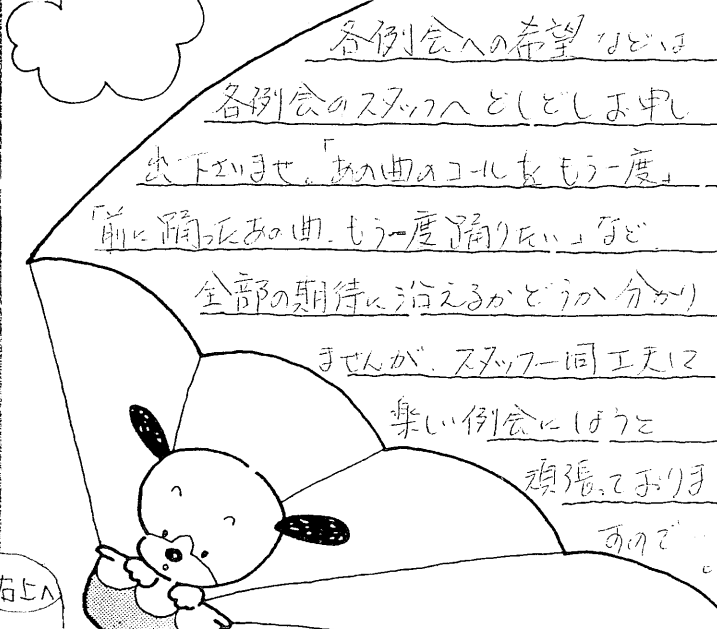 各例会への希望などは
各例会のスタッフへどしどしお申し
出下さいませ。「あの曲のコールをもう一度」
「前に踊ったあの曲、もう一度踊りたい」など
全部の期待に沿えるかどうか分かり
ませんが、スタッフ一同工夫して
楽しい例会にしようと
頑張っておりま
すので
右上へ